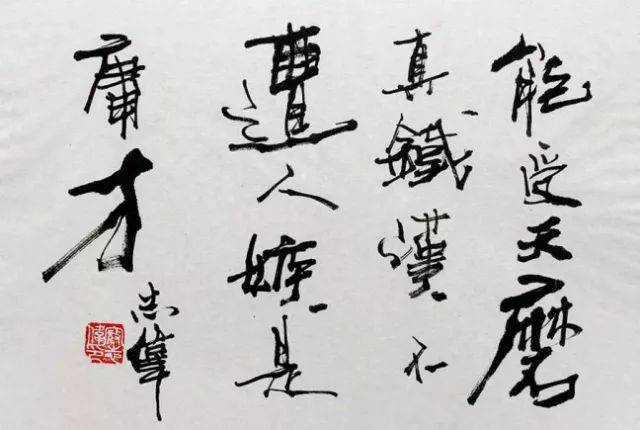 能受天磨
真鐵漢不
遭人嫉是
庸才
志偉